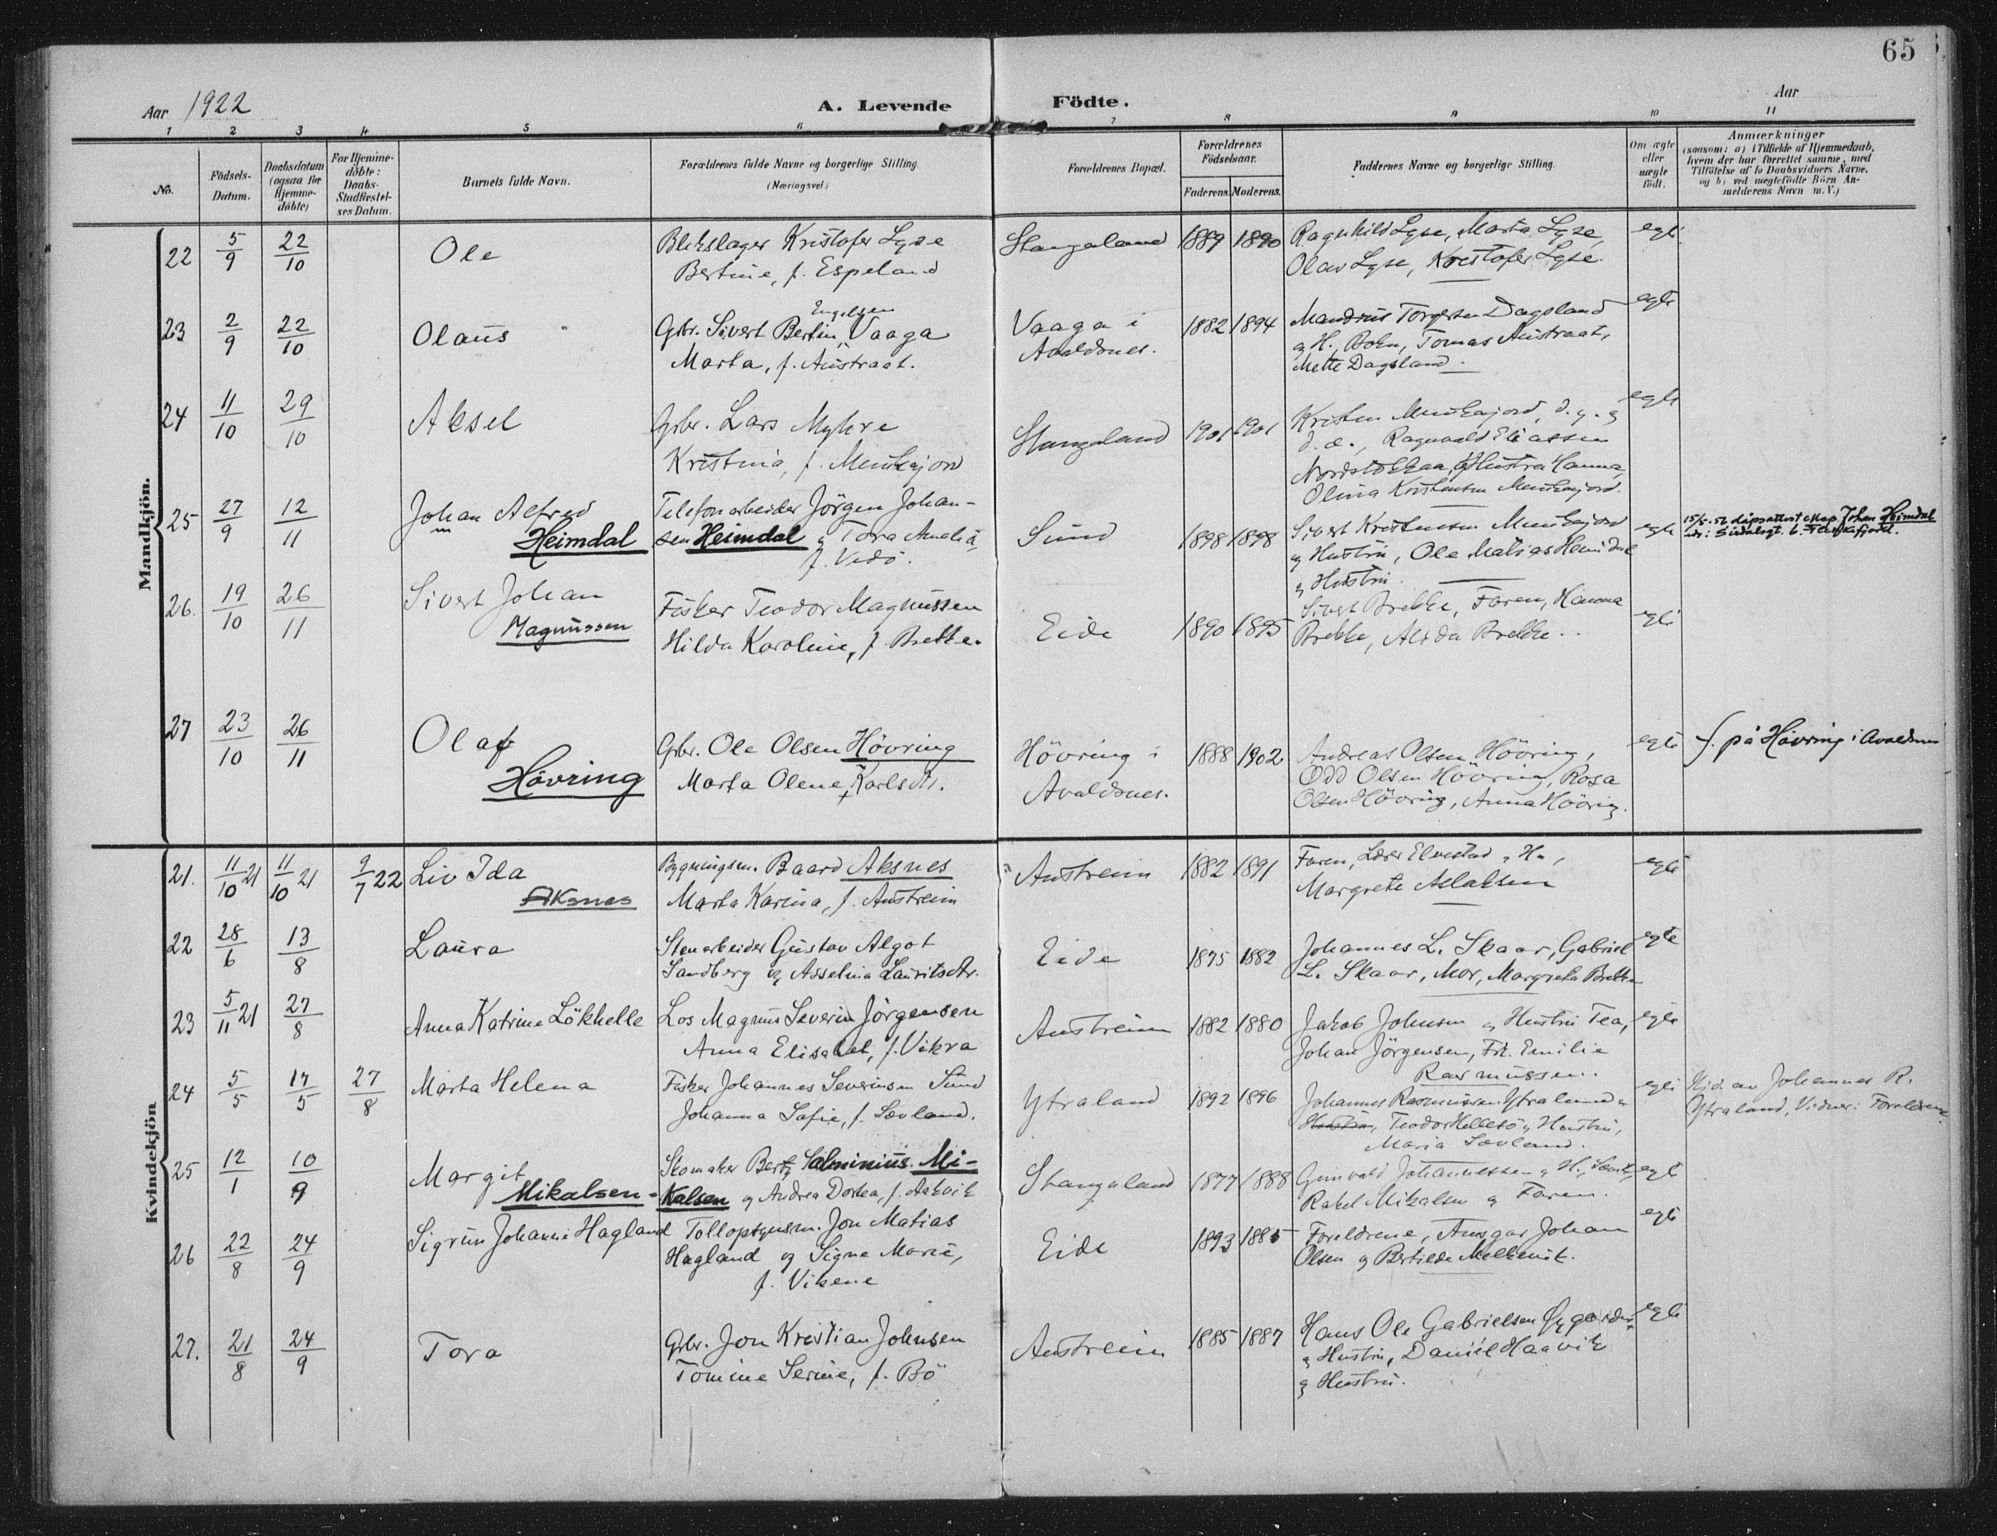 65
Aar 1922
A. Levende Födte.
Aar
1 2 3 4 5 6 7 8 9 10 11
No.
Födsels-Datum.
Daabsdatum (ogsaa for Hjemme-döbte)
For Hjemme-döbte: Daabs-Stadfæstel-ses Datum.
Barnets fulde Navn.
Forældrenes fulde Navne og borgerlige Stilling.
(Næringsvei.)
Forældrenes Bopæl.
Forældrenes Födselsaar.
Faderens. Moderens.
Faddernes Navne og borgerlige Stilling.
Om ægte eller uægte födt.
Anmærkninger
(saasom: a) i Tilfælde af Hjemmedaab,
hvem der har forrettet samme, med
Tilföielse af to Daabsvidners Navne.
og b) ved uægtefödte Börn An-
melderens Navn m. V.)
Mandkjön.
22 5/9 22/10 Ole
Blekslager Kristofer Lyse
Bertine, f. Espeland
Stangaland 1889 1890
Ragnhild Lyse, Marta Lyse,
Olav Lyse, Kristofer Lyse.
egte
23 2/9 22/10 Olaus
Engelsen
Gbr. Sivert Bertin Vaaga
Marta, f. Austraat.
Vaaga i
Avaldsnes.
1882 1894
Mandrus Torgersen Dagsland
og H. Boen, Tomas Austraat,
Mette Dagsland.
egte
24 11/10 29/10 Aksel
Gbr. Lars Myhre
Kristina, f. Munkejord
Stangaland 1901 1901
Kristen Munkejord, d. y. og
d. æ., Ragnvald Eliassen
Nordstokkaa, og Hustru Hanna,
Olina Kristensen Munkejord.
egte
25 27/9 12/11 Johan Alfred
Heimdal
Telefonarbeider Jörgen Johan-
sen Heimdal og Tora Amalia,
f. Vedö.
Sund 1898 1898
Sivert Kristensen Munkejord
og Hustru, Ole Matias Heimdal
og Hustru.
egte
15/5.52 dåpsattest Johan Heimdal
26. 19/10 26/11 Sivert Johan
Magnussen
Fisker Teodor Magnussen
Hilda Karoline, f. Brekke.
Eide 1890 1895
Sivert Brekke, Faren, Hanna
Brekke, Alida Brekke.
egte
27 23/10 26/11 Olaf
Hövring
Gbr. Ole Olsen Hövring
Marta Olene, f. Karlsdtr.
Hövring i
Avaldsnes.
1888 1902
Andreas Olsen Hövring,
Odd Olsen Hövring, Rosa
Olsen Hövring, Anna Hövring.
egte
f. på Hövring i Avaldsnes
Kvindekjön
21. 11/10 21 11/10 21 9/7 22 Liv Ida
Aksnes
Bygningsm. Baard Aksnes
Marta Karina, f. Austreim
Austreim 1882 1891
Faren, Lærer Elvestad og H.,
Margrete Aslaksen
egte
22 28/6 13/8 Laura
Stenarbeider Gustav Algot
Sandberg og Asselina Lauritsdtr.
Eide 1875 1882
Johannes L. Skaar, Gabriel
L. Skaar, Mor, Margreta Brekke
egte
23 5/11 21 27/8 Anna Katrine Lökhelle
Los Magnus Severin Jörgensen
Anna Elisabet, f. Vikra
Austreim 1882 1880
Jakob Johnsen og Hustru Tea,
Johan Jörgensen, Frk. Emilie
Rasmussen.
egte
24 5/5 17/5 27/8 Marta Helena
Fisker Johannes Severinsen Sund
Johanna Sofie, f. Sævland.
Ytraland 1892 1896
Johannes Rasmussen Ytraland og
Hustru, Teodor Hellesö og Hustru,
Maria Sævland.
egte
Hjd. av Johannes R.
Ytraland, Vidner: Foreldrene
25 12/1 10/9 Margit
Mikalsen
Skomaker Berty Salminius Mi-
kalsen og Andrea Dortea, f. Aakvik
Stangaland 1877 1888
Gunvald Johannessen og H.,
Rakel Mikalsen og Faren.
egte
26 22/8 24/9 Sigrun Johanne Hagland
Tolloptynsm. Jon Matias
Hagland og Signe Marie,
f. Vikene
Eide 1893 1885
Foreldrene, Ansgar Johan
Olsen og Bertilde Melkevik.
egte
27. 21/8 24/9 Tora
Gbr. Jon Kristian Johnsen
Tomine Serine, f. Bö
Austreim 1885 1887
Hans Ole Gabrielsen Øygarden
og Hustru, Daniel Haavik
og Hustru.
egte